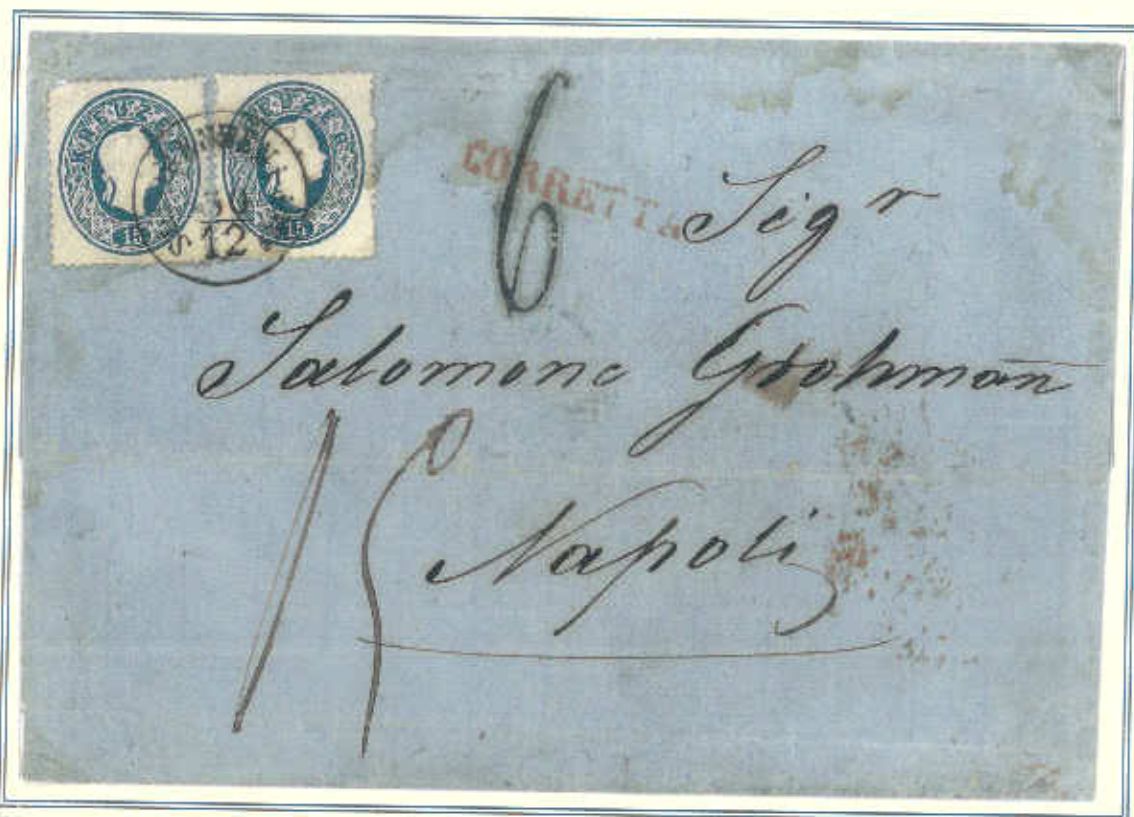 KREUZER KREUZER
15 15
12
6
CORRETTA
Sigr
Salomone Grohmañ
15
Napoli